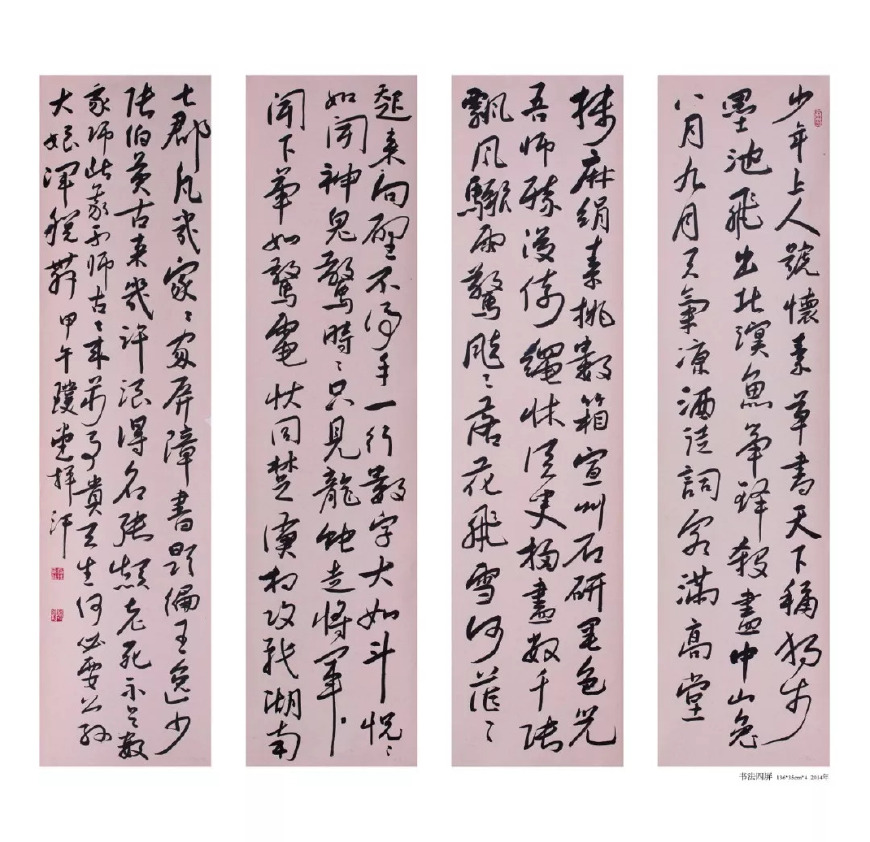 少年上人號懷素草書天下稱獨步
墨池飛出北溟魚筆鋒殺盡中山兔
八月九月天氣凉酒徒詞客滿高堂
牋麻絹素排數箱宣州石研墨色光
吾師醉後倚繩床須臾掃盡數千張
飄風驟雨驚颯〻落花飛雪何茫〻
起來向壁不停手一行數字大如斗怳〻
如聞神鬼驚時〻只見龍蛇走將軍
聞下筆如驚電狀同楚漢相攻戰湖南
七郡凡幾家〻家屏障書題徧王逸少
張伯英古來幾許浪得名張顛老死不足數
我師此義不師古〻來萬事貴天生何必要公孫
大娘渾脫舞 甲午 璞堂揮汗
书法四屏 136*35cm*4 2014年